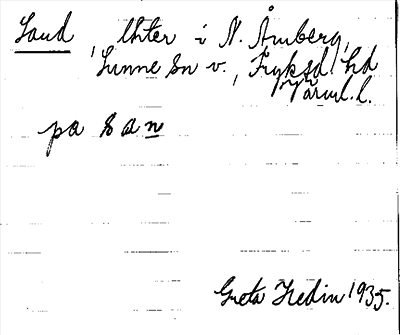 Sand, åkrar i N. Åmberg,
Sunne sn v., Fryksd. hd
Värml. l.
pa san
Greta Hedin 1935.